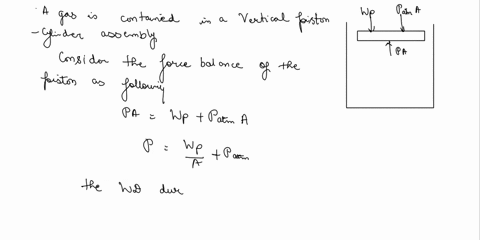 A gas is contained in a Vertical piston
- Cylinder assembly
Consider the force balance of the
piston as following
PA = Wp + Patm A
P = Wp/A + Patm
the WD dur
Wp Patm A
PA